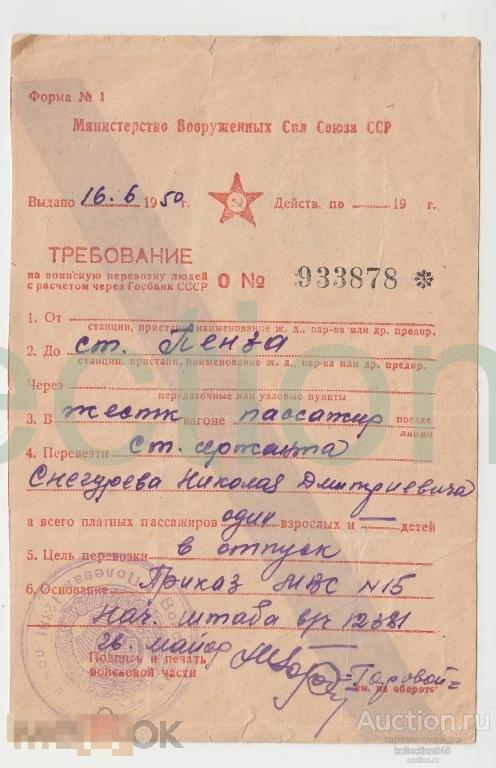 Форма № 1
Министерство Вооруженных Сил Союза ССР
Выдано 16.6 1950 г. Действ. по 19 г.
ТРЕБОВАНИЕ
на воинскую перевозку людей
с расчетом через Госбанк СССР
О № 933878 ✻
1. От
станции, пристани, наименование ж. д., пар-ва или др. предпр.
2. До ст. Пенза
станции, пристани, наименование ж. д., пар-ва или др. предпр.
Через
передаточные или узловые пункты
3. В жестк вагоне пассажир поезде
линии
4. Перевезти ст. сержанта
Снегурева Николая Дмитриевича
а всего платных пассажиров один взрослых и — детей
5. Цель перевозки в отпуск
6. Основание Приказ МВС N 15
Нач. штаба в/ч 12381
гв. майор
Подпись и печать
войсковой части
=Горовой=
См. на обороте
Полевая
ection
МешОК
Auction.ru
kollection546
auction.ru